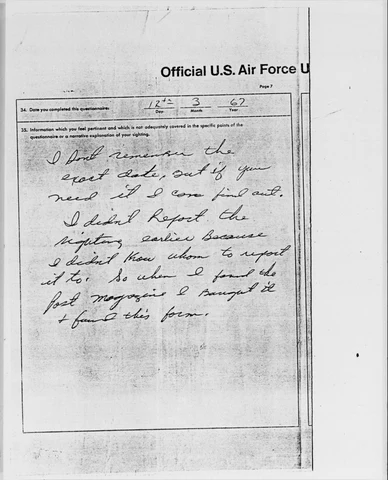 Official U.S. Air Force U
Page 7
34. Date you completed this questionnaire: 12th 3 67
Day Month Year
35. Information which you feel pertinent and which is not adequately covered in the specific points of the
questionnaire or a narrative explanation of your sighting.
I Dont remember the
exact date, but if you
need it I can find out.
I didn't Report the
sighting earlier Because
I didn't Know whom to report
it to. So when I found the
Post magazine I Baught it
+ found this form.